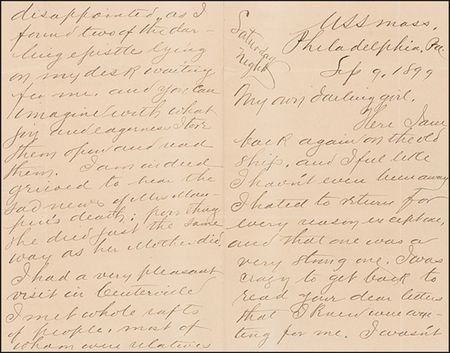 USS Mass.
Philadelphia, Pa
Saturday
Night
Sep 9, 1899
My own darling girl,
Here I am
back again on the old
ship, and I feel like
I haven't even been away
I hated to return for
every reason except one,
and that one was a
very strong one. I was
crazy to get back to
read your dear letters
that I knew were wai-
ting for me. I wasn't
disappointed, as I
found two of the dar-
ling epistles lying
on my desk waiting
for me, and you can
imagine with what
joy and eagerness I tore
them open and read
them. I am indeed
grieved to hear the
sad news of Mrs.
death; poor thing
she died just the same
way as her Mother did.
I had a very pleasant
visit in Centerville
I met whole rafts
of people, most of
whom were relatives